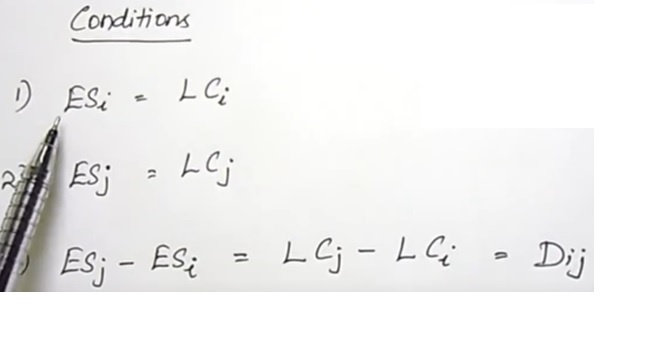 Conditions
1) ESi = LCi
2) ESj = LCj
) ESj - ESi = LCj - LCi = Dij